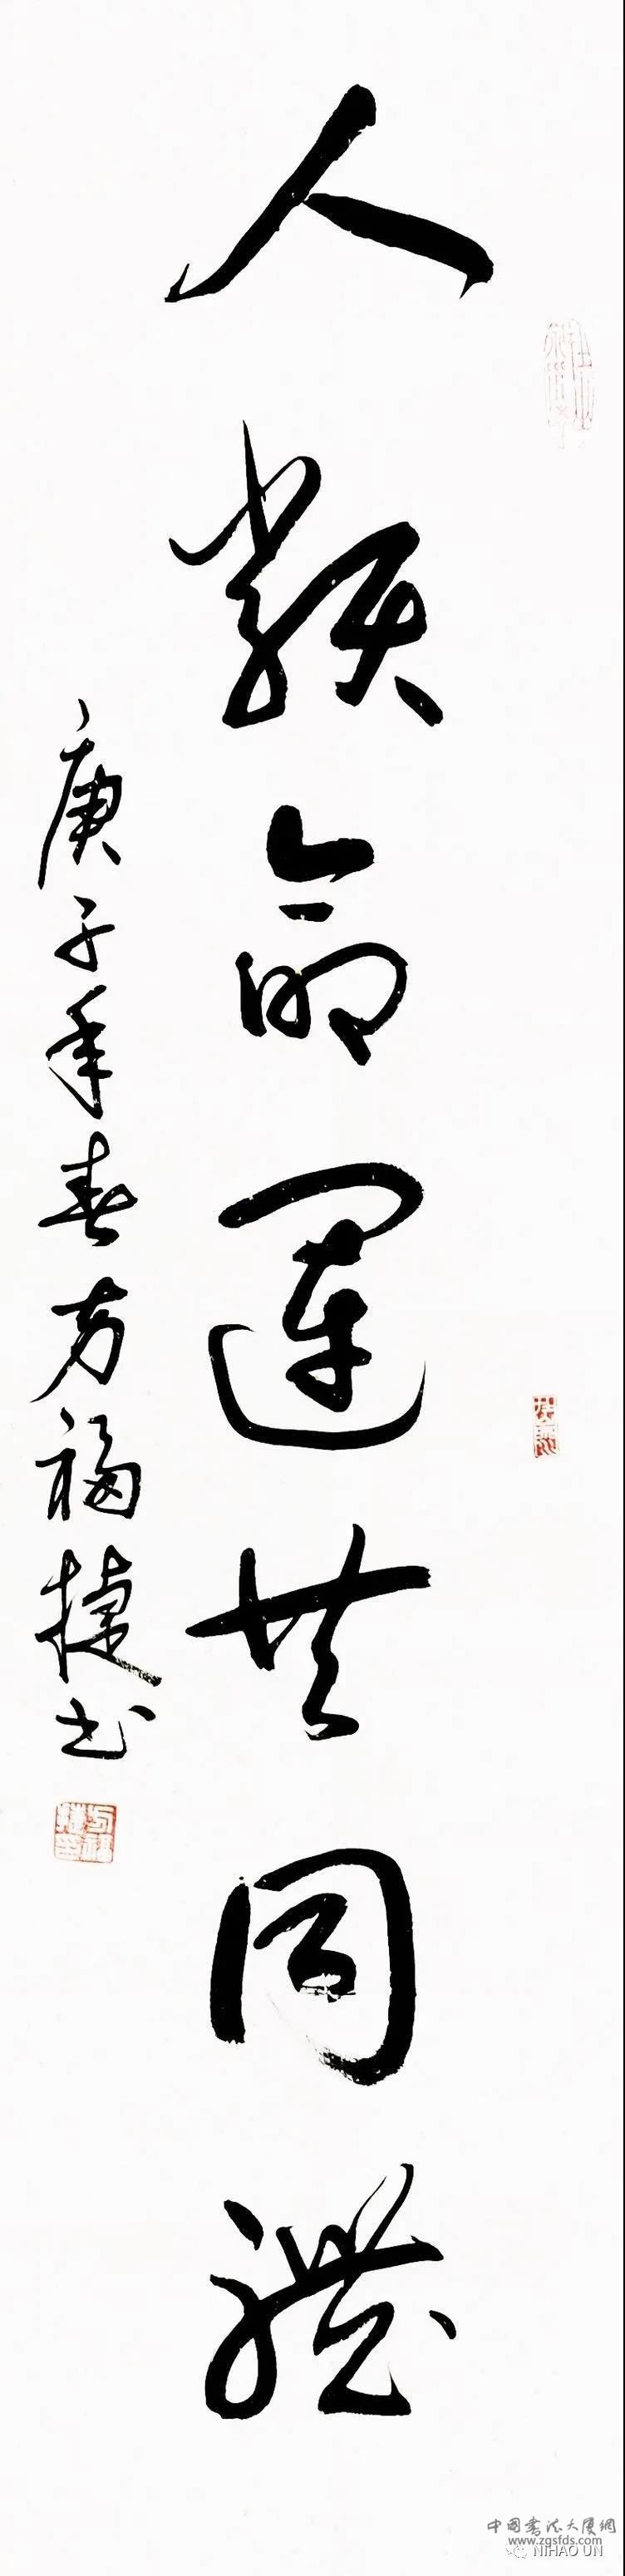 人類命運共同體
庚子年春方福捷书
中国书法大厦網
www.zgsfds.com
NIHAO UN